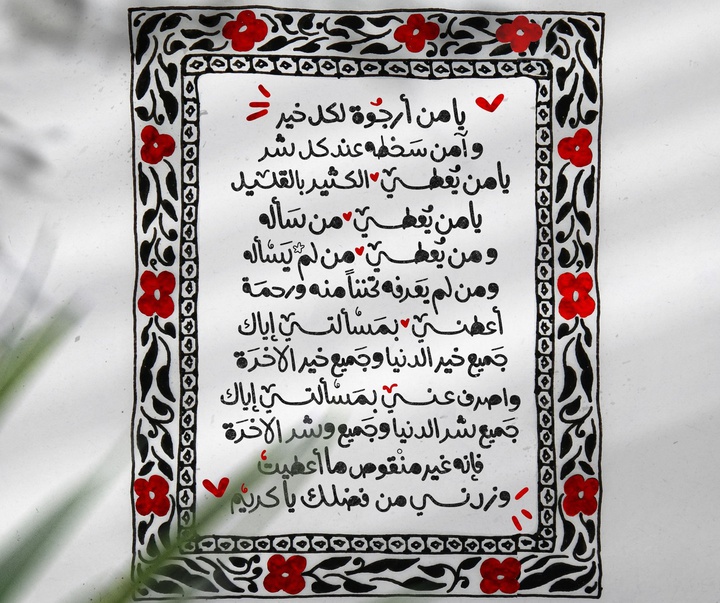 يا من أرجوة لكل خير
و آمن سَخطه عند كل شر
يا من يُعطي الكثير بالقليل
يا من يُعطي من سَأله
و من يُعطي من لم يَسأله
ومن لم يَعرفه تحنناً منه ورحمَة
أعطني بمَسألتي إياك
جَميع خير الدنيا وجَميع خير الآخرَة
واصرف عني بمَسألتي إياك
جَميع شر الدنيا وجَميع وشر الآخرَة
فإنه غير منْقوص ما أعطيت
وزدني من فضلك يا كريم